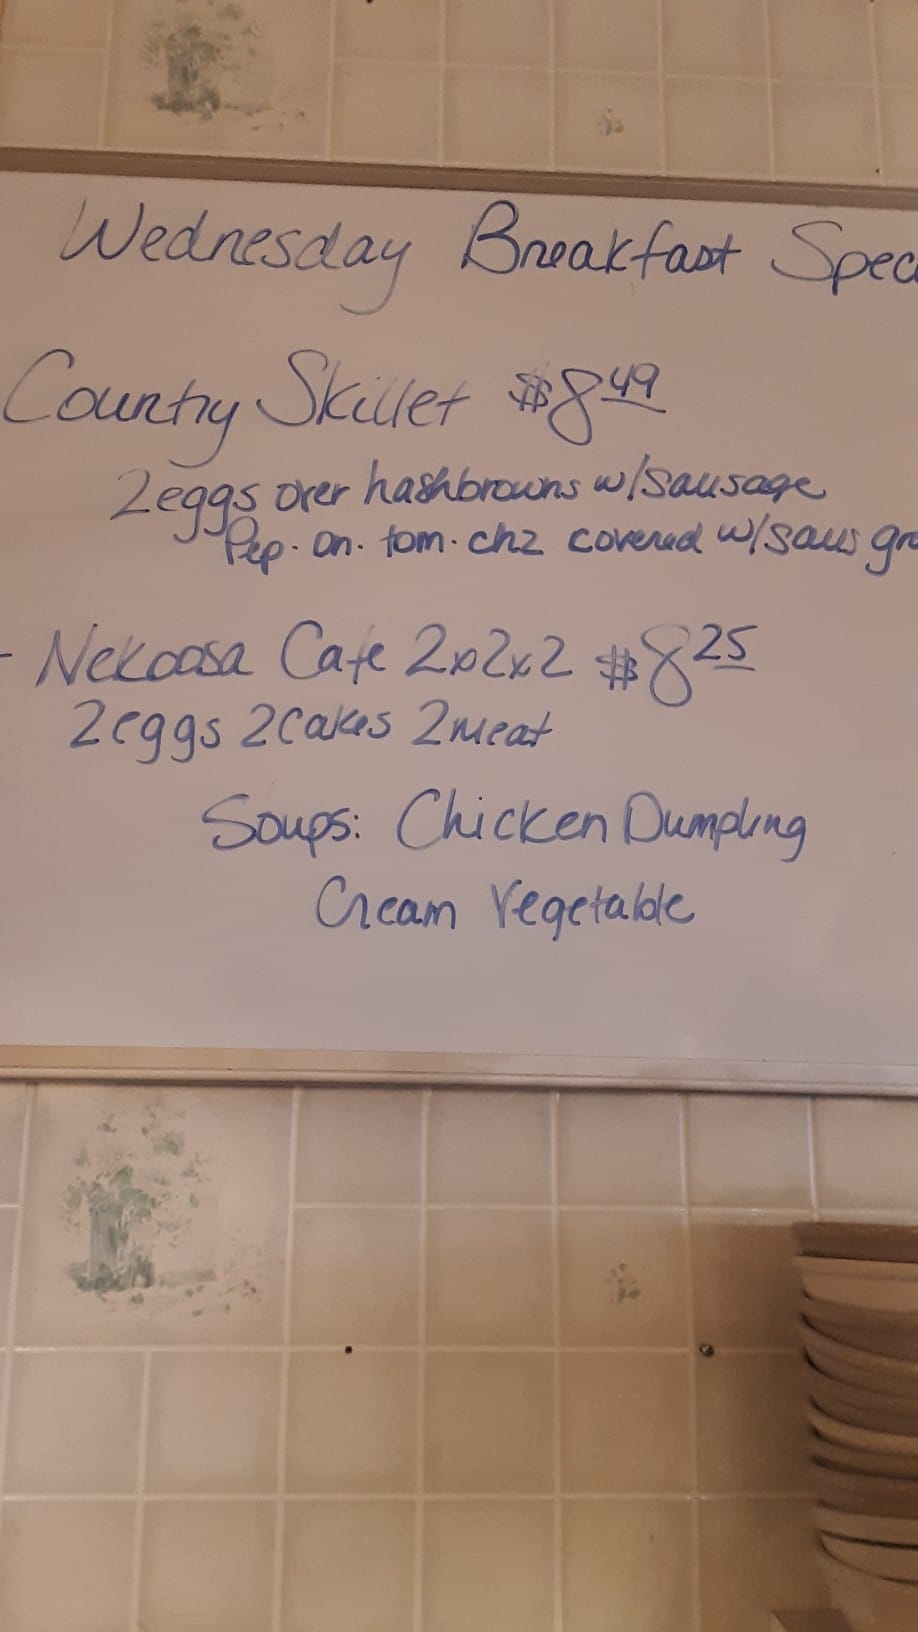 Wednesday Breakfast Spec
Country Skillet $8.49
2eggs over hashbrowns w/sausage
Pep. on. tom. chz covered w/saus gra
- Nekoosa Cafe 2x2x2 $8.25
2eggs 2cakes 2meat
Soups: Chicken Dumpling
Cream Vegetable